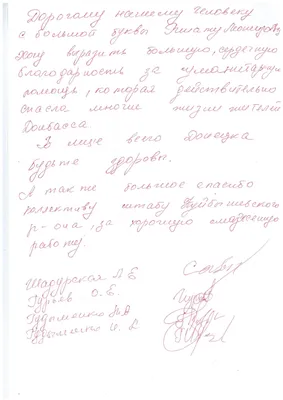 Дорогому нашему человеку
с большой буквы Ринату Леонидовичу
хочу выразить большую, сердечную
благодарность за гуманитарную
помощь, которая действительно
спасла многие жизни жителей
Донбасса.
В лице всего Донецка
будьте здоровы.
А также большое спасибо
коллективу штабу Куйбышевского
р-она, за хорошую слаженную
работу.
Шадурская Л. Е
Гуреев О. Б.